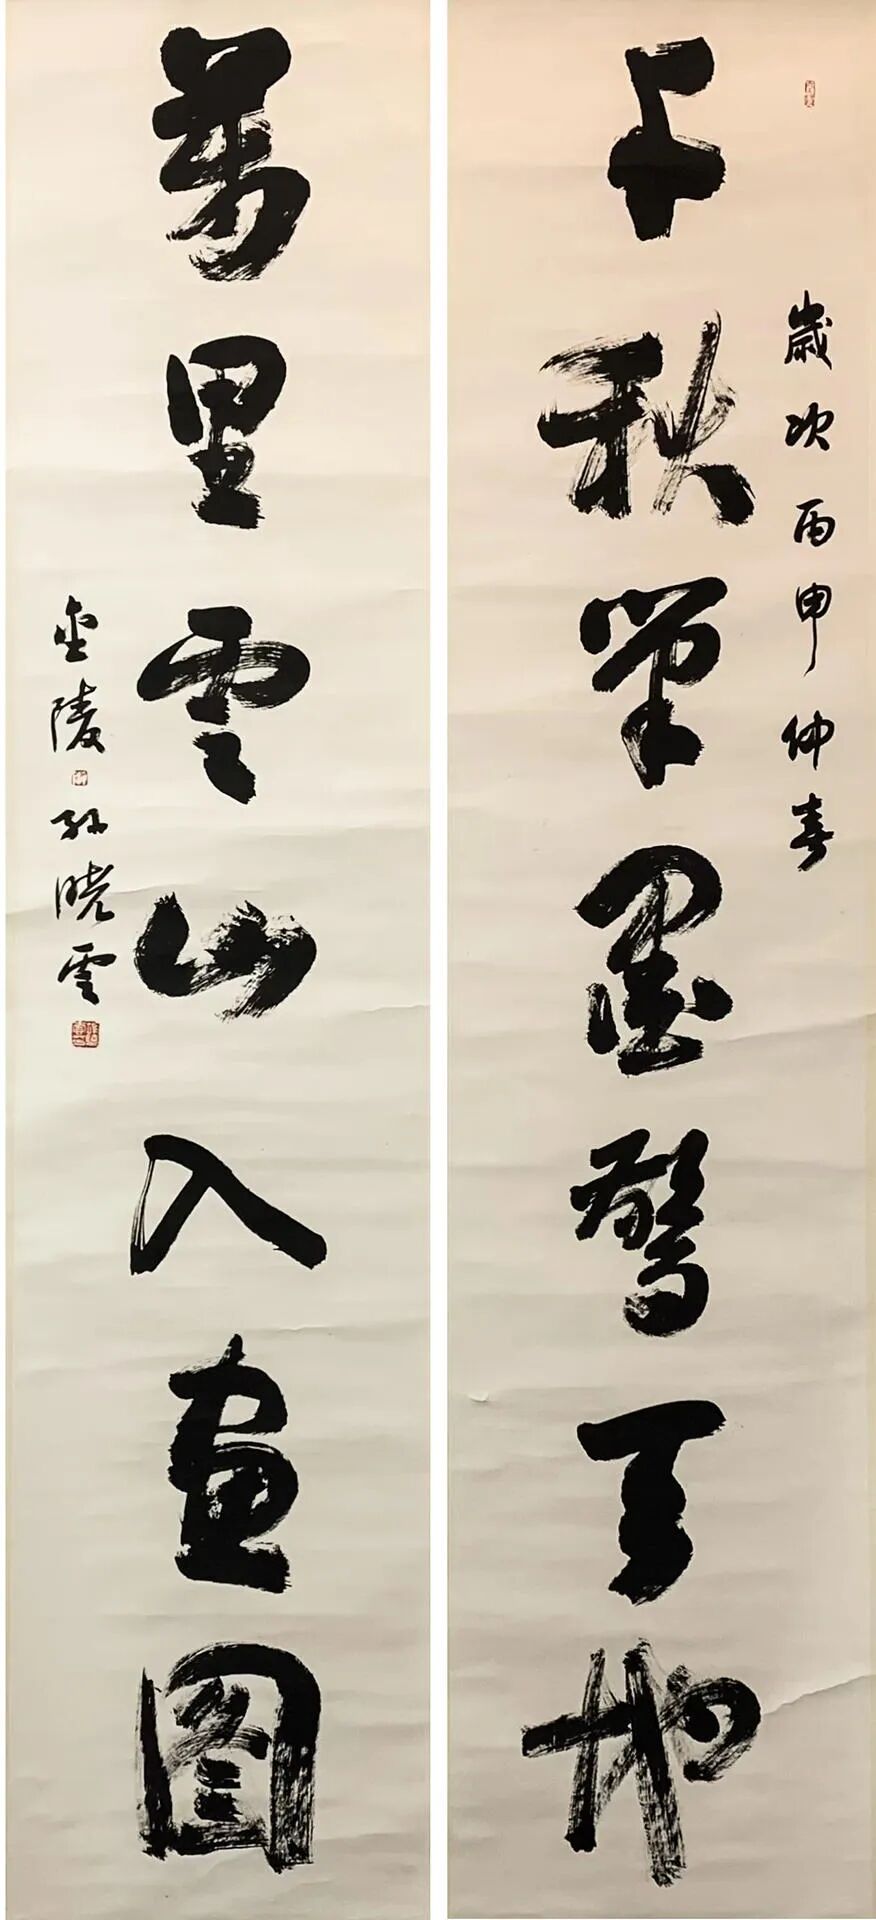 歲次丙申仲春
千秋筆墨驚天地
萬里雲山入畫图
金陵孫晓雲